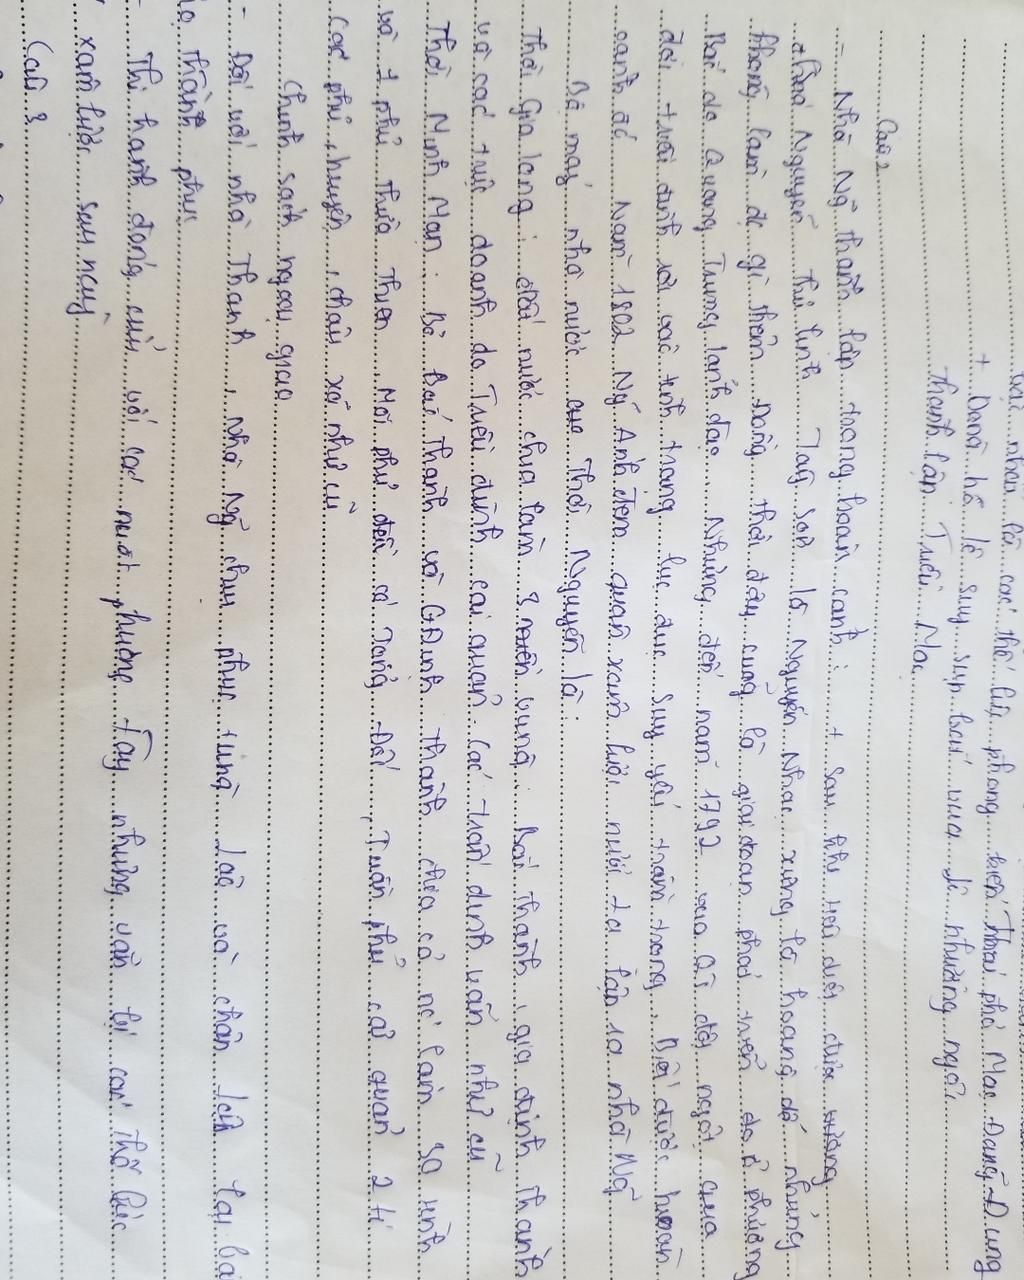 nhân là các thế lực phong kiến Thái phó Mạc Đăng Dung
+ Dành hồ lê suy sụp bắt vua lê nhường ngôi
thành lập Triều Mạc
Câu 2
- Nhà Ng thành lập trong hoàn cảnh : + sau khi tiêu diệt được
chúa Nguyễn thủ lĩnh Tây Sơn là Nguyễn Nhạc xưng là hoàng đế nhưng
không làm đc gì thêm Đồng thời đây cũng là giai đoạn phát triển do ở phương
Bắc do Quang Trung lãnh đạo Nhưng đến năm 1792 vua QT đột ngột qua
đời triều đình rơi vào tình trạng lục đục suy yếu trầm trọng, Biết được hoàn
cảnh đó Năm 1802 Ng Ánh đem quân xâm lược nước ta lập ra nhà Ng
Bộ máy nhà nước của Thời Nguyễn là :
Thời Gia long : đất nước chia làm 3 vùng : Bắc thành, gia định thành
và các trực doanh do Triều đình cai quản các trấn dinh vẫn như cũ
Thời Minh Mạn : Bỏ Bắc thành và GĐịnh thành chia cả nc làm 30 tỉnh
và 1 phủ thừa thiên, Mỗi phủ đều có Tổng đốc, Tuần phủ cai quản 2 ti
Các phủ, huyện, châu, xã như cũ
Chính sách ngoại giao
- Đối với nhà Thanh, nhà Ng chịu phục tùng Lào và chân lạp lại bắ
thành phục
Thi hành đóng cửa với các nước phương Tây nhưng vẫn bị các thế lực
xâm lược sau này
Câu 3